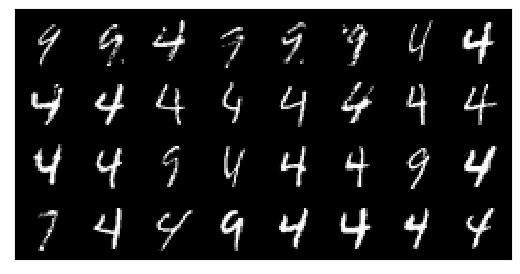 9 9 4 9 9 9 4 4
4 4 4 4 4 4 4 4
4 4 9 4 4 4 9 4
7 4 4 9 4 4 4 4